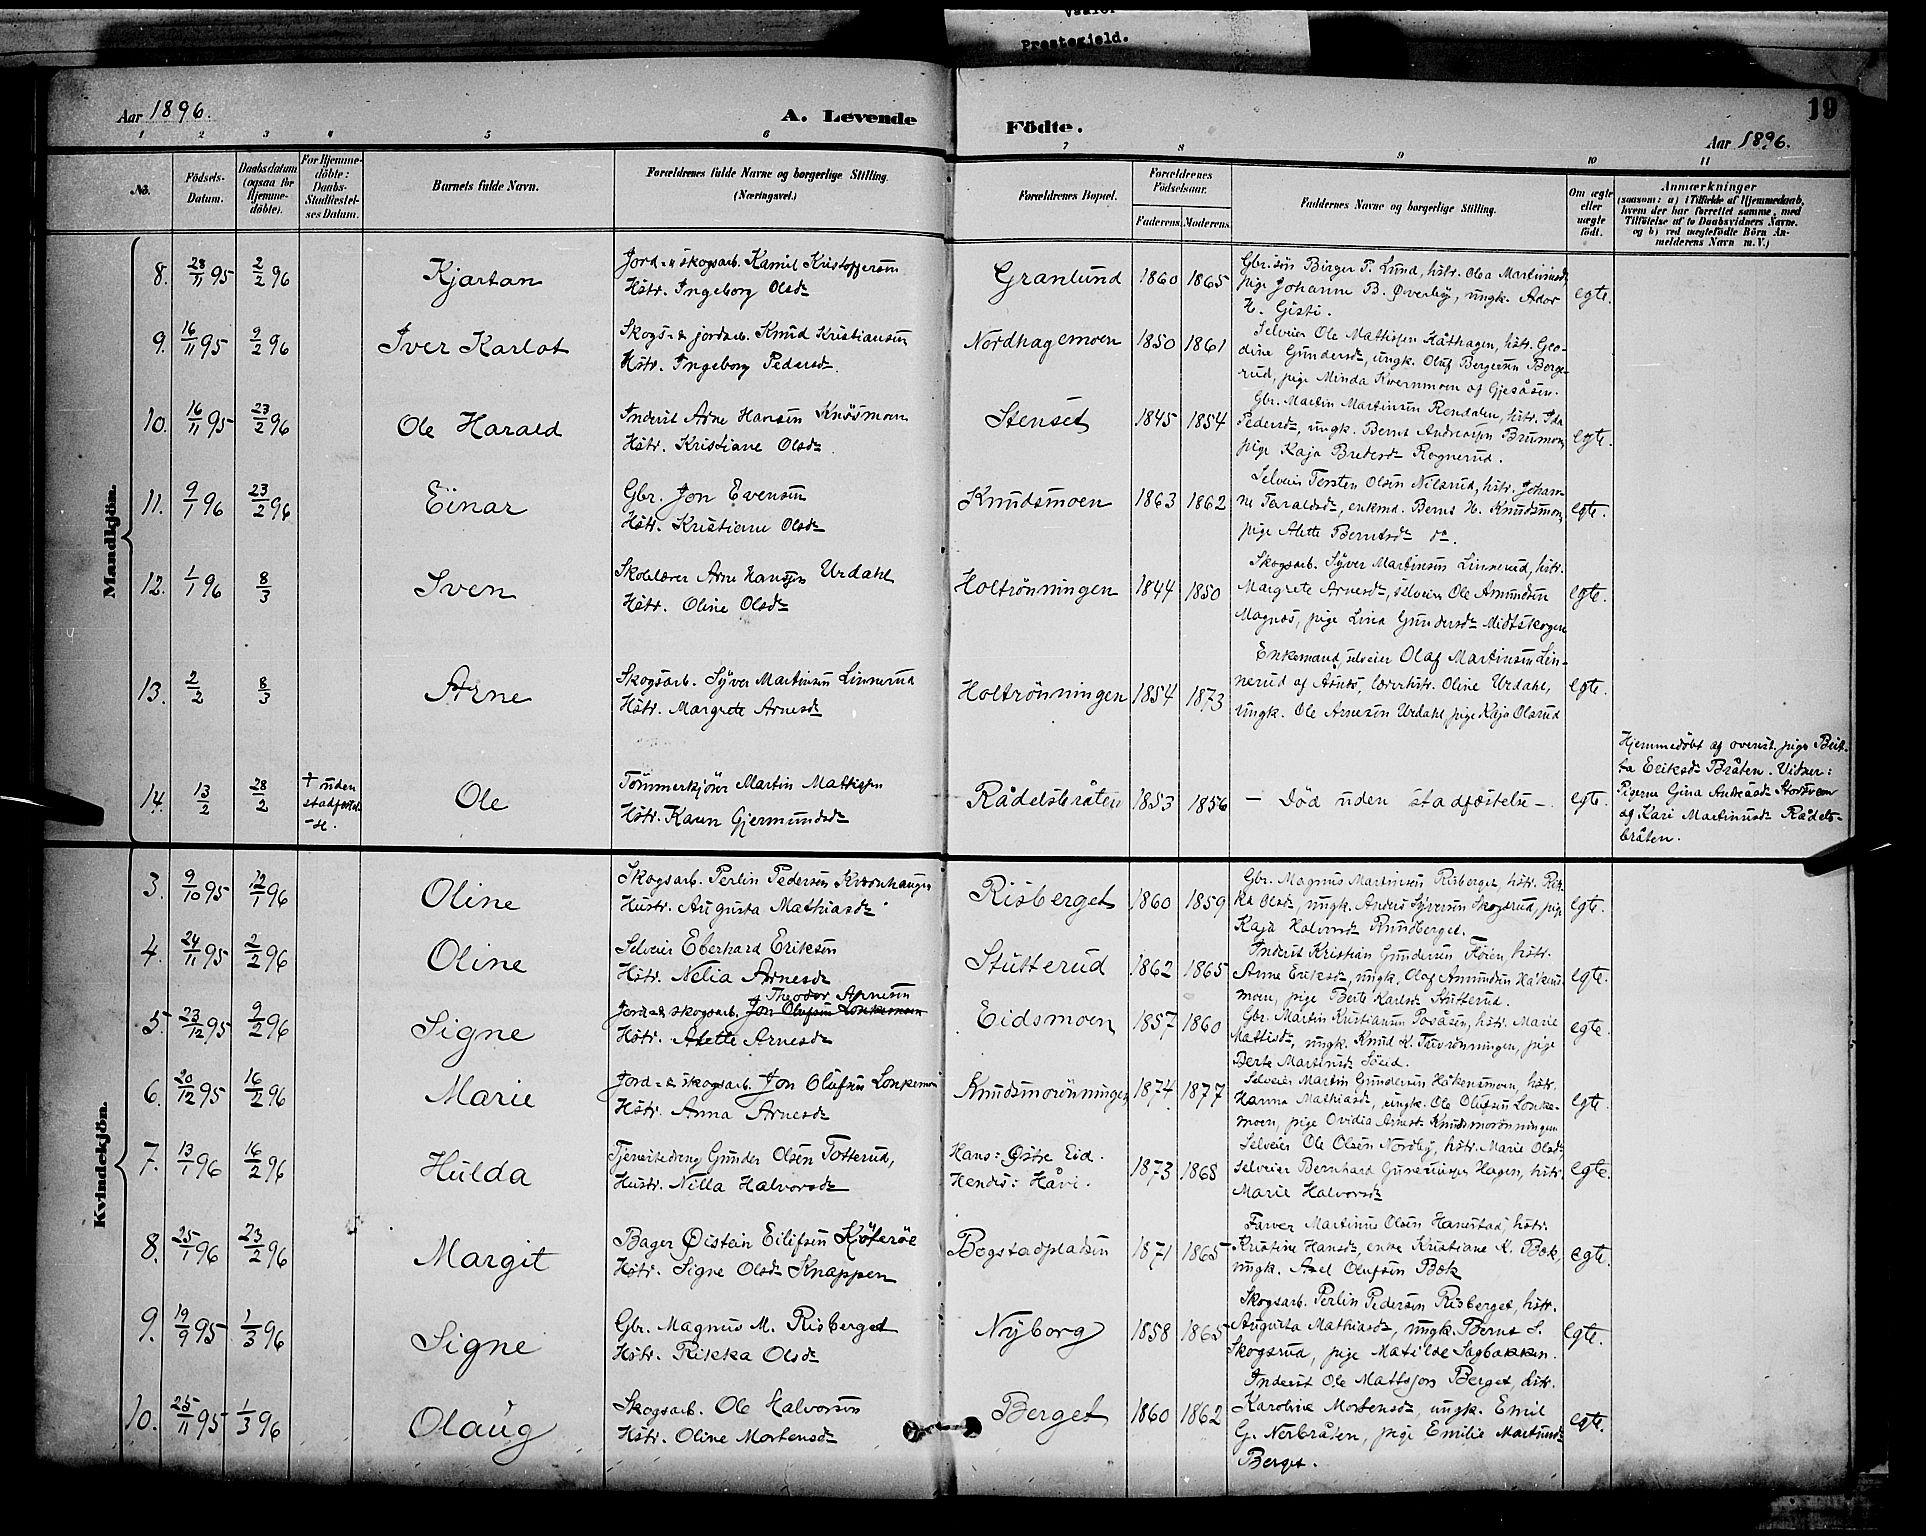 Vaaler
Prestegjeld.
Aar 1896.
A. Levende
Födte.
19
Aar 1896.
1 2 3 4 5 6 7 8 9 10 11
No.
Födsels-
Datum.
Daabsdatum
(ogsaa for
Hjemme-
döbte).
For Hjemme-
döbte:
Daabs-
Stadfæstel-
ses Datum.
Barnets fulde Navn.
Forældrenes fulde Navne og borgerlige Stilling.
(Næringsvei.)
Forældrenes Bopæl.
Forældrenes
Födselsaar.
Faderens. Moderens.
Faddernes Navne og borgerlige Stilling.
Om ægte
eller
uægte
födt.
Anmærkninger
(saasom: a) i Tilfælde af Hjemmedaab,
hvem der har forrettet samme, med
Tilföielse af to Daabsvidners Navne.
og b) ved uægtefödte Börn An-
melderens Navn m. V.)
Mandkjön.
8. 28/11 95 2/2 96 Kjartan
Jord- & skogsarb. Kamil Kristoffersen
Hstr. Ingeborg Olsdr
Granlund 1860 1865
Gbr.sön Birger P. Lund, hstr. Olea Martinusdr,
pige Johanne B. Överby, ungk. Ador
H. Gisti.
egte.
9. 16/11 95 9/2 96 Iver Karlot
Skogs- & jordarb. Knud Kristiansen
Hstr. Ingeborg Pedersdr.
Nordhagemoen 1850 1861
Selveier Ole Mathisen Håthagen, hstr. Geo-
dine Gundersdr, ungk. Olaf Bergersen Berge-
rud, pige Minda Kvernmoen af Gjesåsen.
10. 16/11 95 23/2 96 Ole Harald
Inderst Arne Hansen Knösmoen
Hstr. Kristiane Olsdr.
Stenset 1845 1854
Gbr. Martin Martinsen Rendalen, hstr. Ida
Pedersdr, ungk. Bernt Andreasen Brumoen,
pige Kaja Bredesdr Rognerud.
egte.
11. 9/1 96 23/2 96 Einar
Gbr. Jon Evensen
Hstr. Kristiane Olsdr
Knudsmoen 1863 1862
Selveier Torsten Olsen Nilsrud, hstr. Johan-
ne Taraldsdr, enkmd. Bernt H. Knudsmoen,
pige Alette Berntsdr do.
egte.
12. 1/1 96 8/3 Sven
Skolelærer Arne Hansen Urdahl
Hstr. Oline Olsdr
Holtrönningen 1844 1850
Skogsarb. Syver Martinsen Linnerud, hstr.
Margrete Arnesdr, selveier Ole Amundsen
Magnås, pige Lina Gundersdr Midtskogen
egte.
13. 2/2 8/3 Arne
Skogsarb. Syver Martinsen Linnerud
Hstr. Margrete Arnesdr
Holtrönningen 1854 1873
Enkemand, selveier Olaf Martinsen Lin-
nerud af Åsnes, lærerhstr. Oline Urdahl,
ungk. Ole Arnesen Urdahl, pige Kaja Olsrud
egte.
14. 13/2 28/2
† uden
stadfæstel-
-se.
Ole
Tömmerkjörer Martin Mathisen
Hstr. Karen Gjermundsdr
Rådelsbråten 1853 1856
– Död uden stadfæstelse –
egte.
Hjemmedöbt af ovenst. pige Beit-
ta Eriksdr Bråten. Vidner:
Pigerne Gina Andreasdr Storsveen
og Kari Martinusdr Rådels-
bråten.
Kvindekjön.
3. 9/10 95 12/1 96 Oline
Skogsarb. Perlin Pedersen Kroonhaugen
Hustr. Augusta Mathiasdr
Risberget 1860 1859
Gbr. Magnus Martinsen Risberget, hstr. Rik-
ka Olsdr, ungk. Anders Syversen Skogsrud, pige
Kaja Halvorsdr Rundberget.
egte.
4. 24/11 95 2/2 96 Oline
Selveier Eberhard Eriksen
Hstr. Nelia Arnesdr
Stutterud 1862 1865
Inderst Kristian Gundersen Höien, hstr.
Anne Eriksdr, ungk. Olaf Amundsen Håkens-
moen, pige Berte Karlsdr Stutterud.
egte.
5. 23/12 95 9/2 96 Signe
Theodor Arnesen
Jord- & skogsarb. Jon Olufsen Lonkemoen
Hstr. Alette Arnesdr
Eidsmoen 1857 1860
Gbr. Martin Kristiansen Posåsen, hstr. Marie
Mathisdr, ungk. Knud K. Tuvrönningen, pige
Berte Martinusdr Söeid.
egte.
6. 20/12 95 16/2 96 Marie
Jord- & skogsarb. Jon Olufsen Lonkemoen
Hstr. Anna Arnesdr
Knudsmorönningen 1874 1877
Selveier Martin Gundersen Håkensmoen, hstr.
Hanna Mathiasdr, ungk. Ole Olufsen Lonke-
moen, pige Ovidia Arnesdr Knudsmorönningen
egte.
7. 13/1 96 16/2 96 Hulda
Tjenestedreng Gunder Olsen Totterud,
Hustr. Nilla Halvorsdr
Hans: Östre Eid.
Hendes: Håvi.
1873 1868
Selveier Ole Olsen Nordby, hstr. Marie Olsdr
selveier Bernhard Gunerius Hagen, hstr.
Marie Halvorsdr
egte.
8. 25/1 96 23/2 96 Margit
Bager Öistein Eilifsen Köteröe
Hstr. Signe Olsdr Knappen
Bogstadpladsen 1871 1865
Farver Martinus Olsen Hanestad, hstr.
Kristine Hansdr, enke Kristiane K. Bæk,
ungk. Axel Olufsen Bæk
egte.
9. 19/9 95 1/3 96 Signe
Gbr. Magnus M. Risberget
Hstr. Rikka Olsdr
Nyborg 1858 1865
Skogsarb. Perlin Pedersen Risberget, hstr.
Augusta Mathiasdr, ungk. Bernt S.
Skogsrud, pige Matilde Sagbakken.
egte.
10. 25/11 95 1/3 96 Olaug
Skogsarb. Ole Halvorsen
Hstr. Oline Mortensdr
Berget 1860 1862
Inderst Ole Mattsson Berget, hstr.
Karolina Mortensdr, ungk. Emil
G. Norbråten, pige Emilie Martinsdr
Berget.
egte.